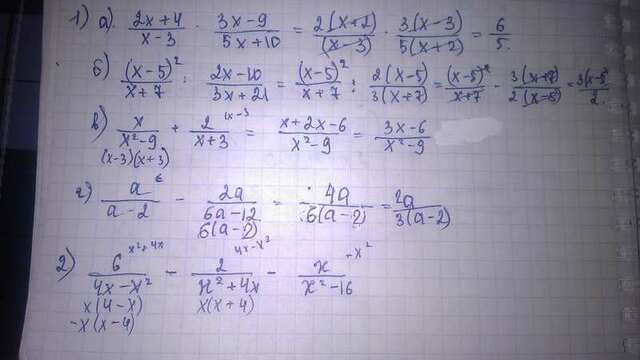 1) а) (2x+4)/(x-3) · (3x-9)/(5x+10) = 2(x+2)/(x-3) · 3(x-3)/5(x+2) = 6/5
б) (x-5)²/(x+7) : (2x-10)/(3x+21) = (x-5)²/(x+7) : 2(x-5)/3(x+7) = (x-5)²/(x+7) · 3(x+7)/2(x-5) = 3(x-5)/2
в) x/(x²-9) + 2/(x+3) = (x+2x-6)/(x²-9) = (3x-6)/(x²-9)
(x-3)(x+3)
г) a/(a-2) - 2a/(6a-12) = 4a/6(a-2) = 2a/3(a-2)
6(a-2)
2) 6/(4x-x²) - 2/(x²+4x) - x/(x²-16)
x(4-x) x(x+4)
-x(x-4)